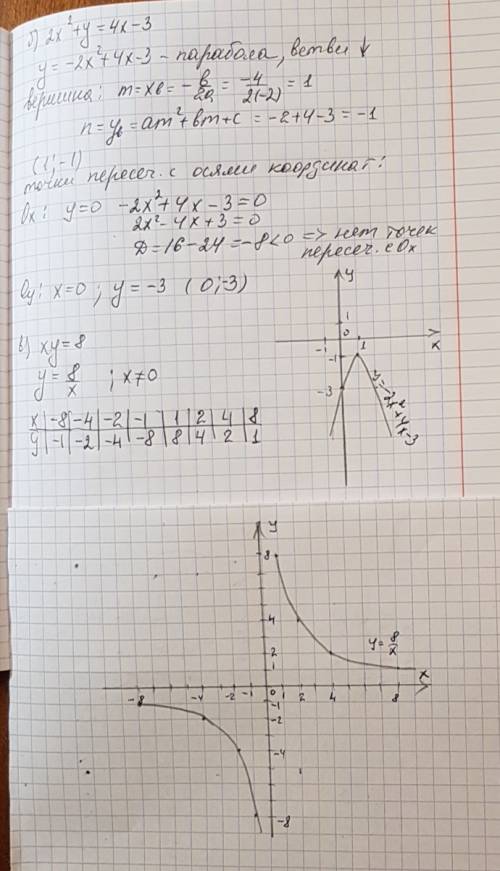 б) 2x²+y=4x-3
y=-2x²+4x-3 - парабола, ветви ↓
вершина: m=xв=-в/2a=-4/2(-2)=1
n=yв=am²+вm+c=-2+4-3=-1
(1;-1)
точки пересеч. с осями координат:
Ox: y=0 -2x²+4x-3=0
2x²-4x+3=0
D=16-24=-8<0 => нет точек
пересеч. с Ox
Oy: x=0; y=-3 (0;-3)
y
1
0
-1 1 x
-1
-3
y=-2x²+4x-3
в) xy=8
y=8/x ; x≠0
x | -8 | -4 | -2 | -1 | 1 | 2 | 4 | 8
y | -1 | -2 | -4 | -8 | 8 | 4 | 2 | 1
y
8
4
y=8/x
2
1
x
-8 -4 -2 -1 0 1 2 4 8
-1
-2
-4
-8